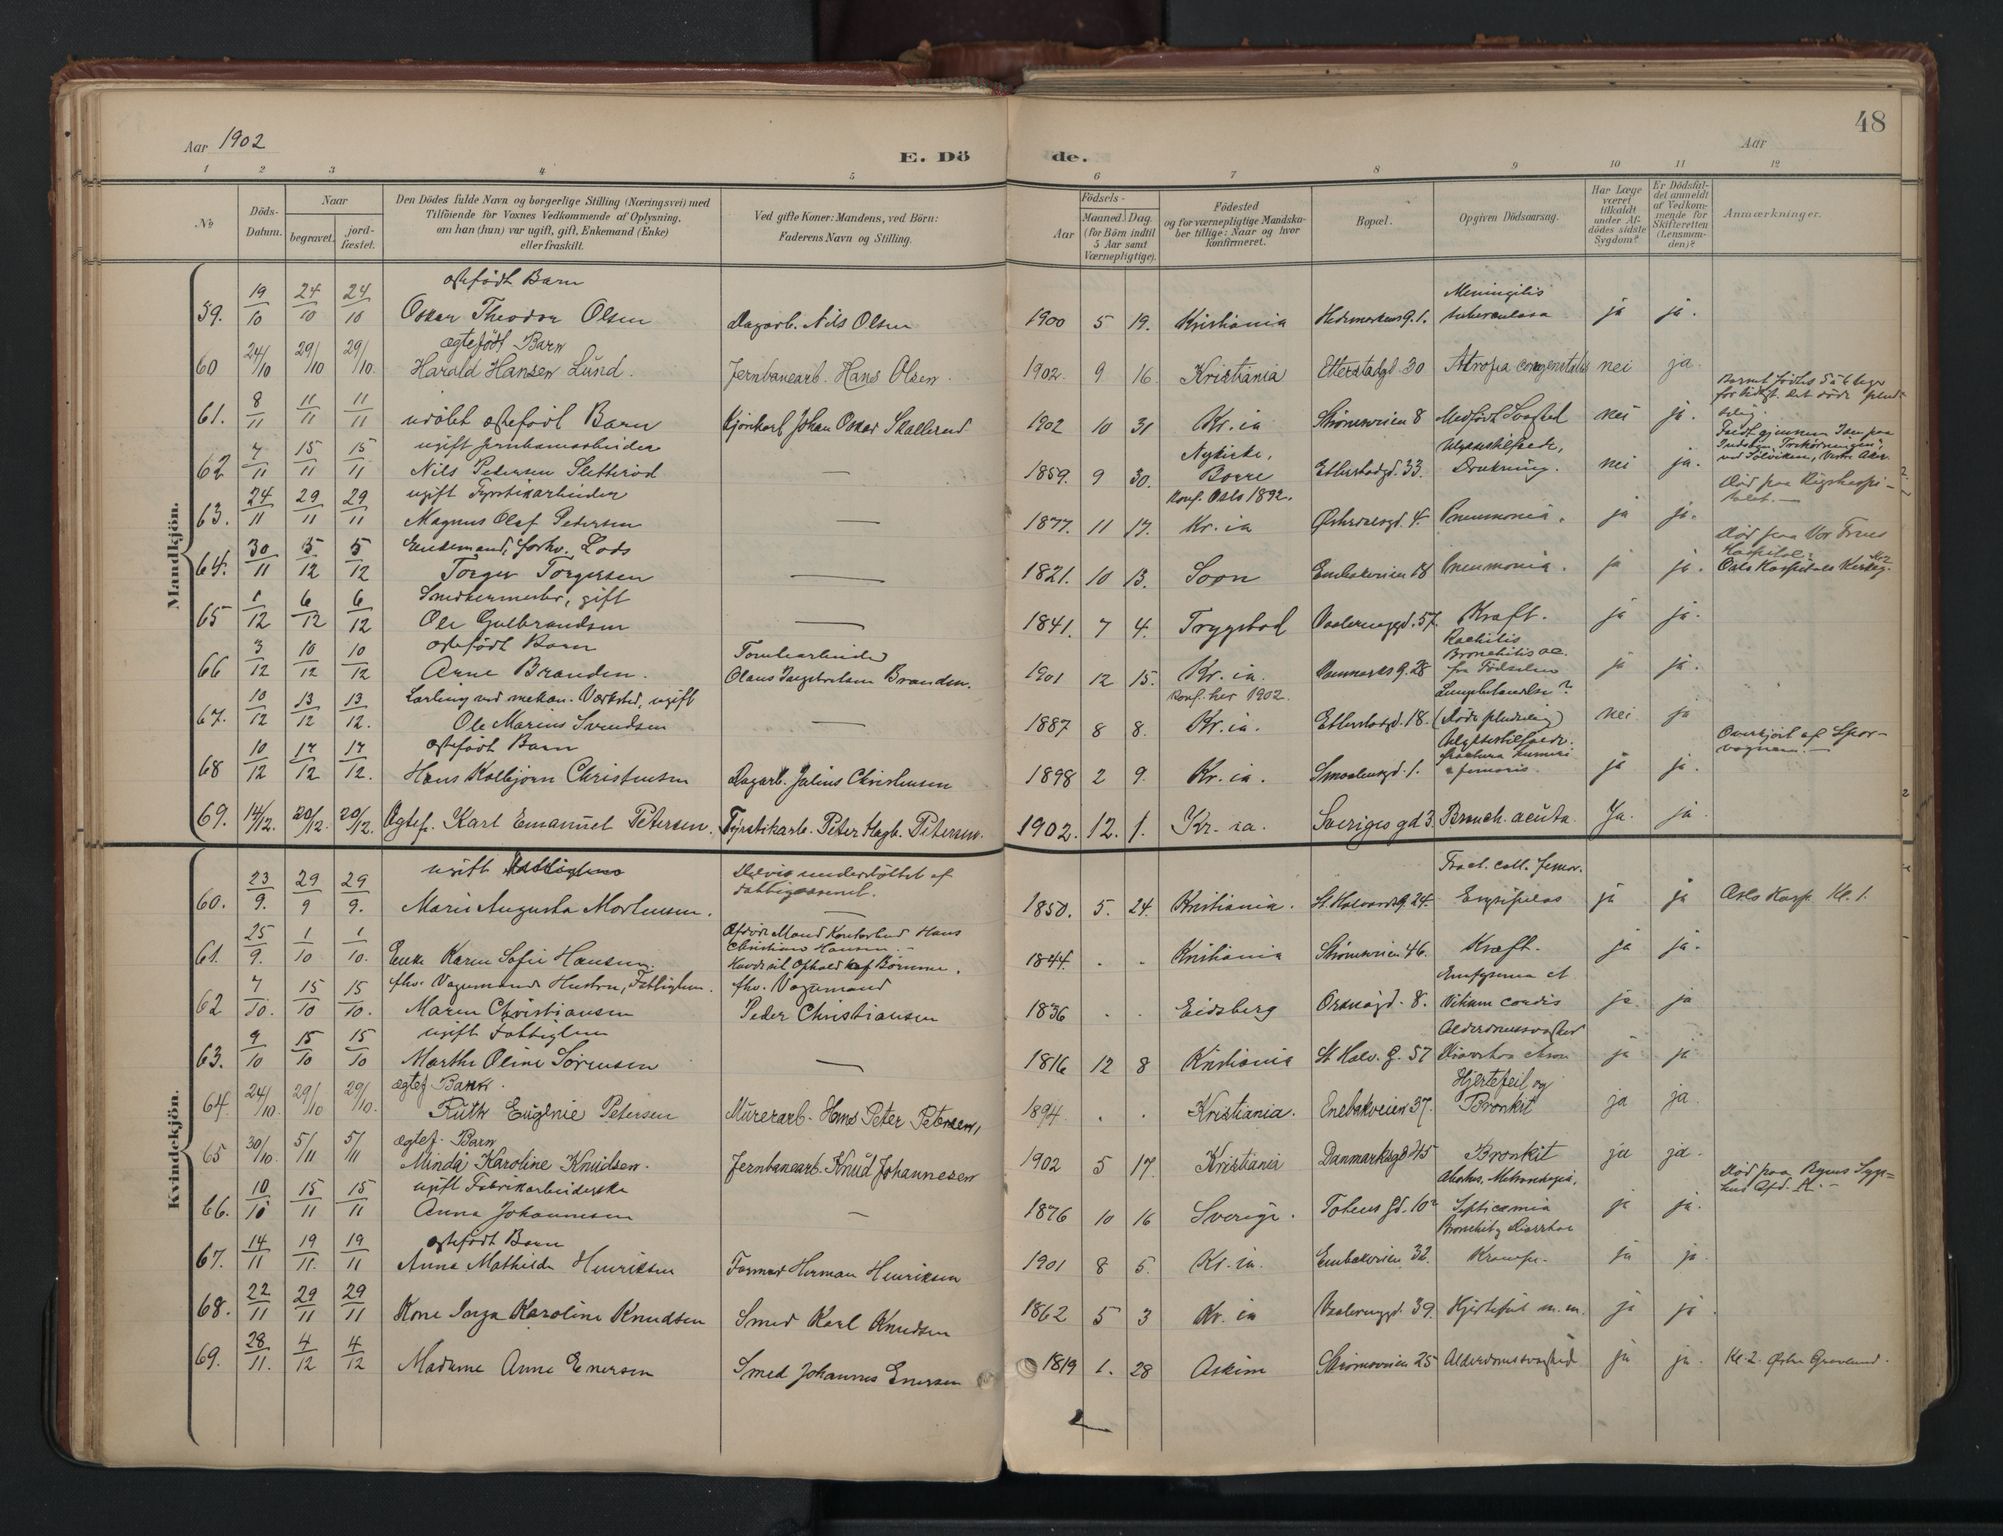 Aar 1902
E. Dö
de.
Aar
48
1 2 3 4 5 6 7 8 9 10 11 12
№
Döds-Datum.
Naar
begravet.
jord-fæstet.
Den Dödes fulde Navn og borgerlige Stilling (Næringsvei) med
Tilföiende for Voxnes Vedkommende af Oplysning,
om han (hun) var ugift, gift, Enkemand (Enke)
eller fraskilt.
Ved gifte Koner: Mandens, ved Börn:
Faderens Navn og Stilling.
Födsels-
Aar
Maaned. Dag.
(for Börn indtil
5 Aar samt
Værnepligtige).
Födested
og for værnepligtige Mandska-
ber tillige: Naar og hvor
konfirmeret.
Bopæl.
Opgiven Dödsaarsag.
Har Læge
været
tilkaldt
under Af-
dödes sidste
Sygdom?
Er Dödsfal-
det anmeldt
af Vedkom-
mende for
Skifteretten
(Lensman-
den)?
Anmærkninger.
Mandkjön.
ægtefødt Barn Meningitis
59. 19/10 24/10 24/10 Oskar Theodor Olsen Dagarb. Nils Olsen 1900 5 19. Kristiania Hedemarkens g. 1. tuberculosa ja ja.
ægtefødt Barn
60 24/10 29/10 29/10 Harald Hansen Lund. Jernbanearb. Hans Olsen. 1902. 9 16. Kristiania Etterstadgt 30 Atropia congenitalis nei ja.
Barnet fødtes 5 à 6 Uger
for tidligt. Det døde plud-
selig.
61. 8/11 11/11 11/11 udøbt ægtefødt Barn Kjørekarl Johan Oskar Skallerud 1902 10 31 Kr.ia Strømsveien 8 Medfødt Svaghed nei ja.
ugift jernbanearbeider Nykirke, Ulykkestilfælde,
62. 7/11 15/11 15/11 Nils Pedersen Sletterød — 1859. 9 30. Borre Etterstadgd. 33. Drukning. nei ja.
Faldt gjennem Isen paa
ved Sølviken, Vestre Aker
ugift Fyrstikarbeider Konf. Oslo 1892.
63. 24/11 29/11 29/11 Magnus Olaf Pedersen — 1877. 11 17. Kr.ia Østerdalsgd. 4. Pneumonia. ja ja.
Død paa Rigshospi-
talet. —
Enkemand, forhv. Lods
64. 30/11 5/12 5/12 Torger Torgersen — 1821. 10 13. Soon Enebakveien 18 Pneumonia. ja ja.
Død paa Vor Frues
Hospital.
Oslo Hospitals Kirkeg.
Smedkermester, gift
65 1/12 6/12 6/12 Ole Gulbrandsen — 1841. 7 4. Trygstad Vaalerenggd. 57. Kræft. ja ja.
ægtefødt Barn Tomtearbeider Rachitis
Bronchitis ac.
66 3/12 10/12 10/12 Arne Branden. Olaus Ingebretsen Branden. 1901 12 15. Kr.ia. Danmarks g. 28 fra Fødselen ja ja.
Lærling ved mekan. Værksted, ugift Konf. her 1902. Lungebetændelse?
67. 10/12 13/12 13/12. Ole Marius Svendsen — 1887 8 8. Kr.ia. Etterstadgd. 18. (Døde pludselig) nei ja
ægtefødt Barn Ulykkestilfælde.
fractura humeri
68 10/12 17/12 17/12. Hans Kolbjørn Christensen Dagarb. Julius Christensen 1898 2 9. Kr.ia. Smaalensgd. 1. & femoris. ja ja.
Overkjørt af Spor-
vognen. —
69. 14/12. 20/12. 20/12. Ægtef. Karl Emanuel Petersen. Fyrstikarb. Peter Hagb. Petersen. 1902. 12. 1. Kr.ia. Sveriges gd 3. Bronch. acuta. Ja. ja.
Kvindekjön.
ugift Fattiglem Delvis understøttet af Fract. coll. femor.
fattigvæsenet.
60. 23/9. 29/9 29/9. Marie Augusta Mortensen. — 1850. 5. 24. Kristiania. St. Halvards g. 24. Erysipelas ja ja Oslo Hosp. Kl. 1.
Afdøde Mand Kontorbud Hans
Christian Hansen. —
61. 25/9. 1/10 1/10. Enke Karen Sofie Hansen. Havde sit Ophold af Børnene. 1844. . . Kristiania Strømsveien 46. Kræft. ja ja.
fhv. Vognmands Hustru, Fattiglem. fhv. Vognmand Emfysema et
62 7/10. 15/10 15/10. Maren Christiansen Peder Christiansen 1836 . . Eidsberg Ordnegd. 8. Vitium cordis ja. ja
ugift Fattiglem Alderdomssvaghed
63. 9/10 15/10 15/10 Marthe Oline Sørensen — 1816 12 8 Kristiania St. Halv. g. 57 Diarrhoe chron ja ja
ægtef. Barn. Hjertefeil og
64. 24/10. 29/10 29/10. Ruth Eugenie Petersen Murerarb. Hans Peter Petersen, 1894. . . Kristiania. Enebakveien 37. Bronkit ja ja.
ægtef. Barn
65 30/10. 5/11 5/11 Minda Karoline Knudsen. Jernbanearb. Knud Johannesen 1902 5 17. Kristiania Danmarksgd 45 Bronkit ja ja.
ugift Fabrikarbeiderske Abortus. Metrorrhagia.
66. 10/10 15/11 15/11 Anna Johannesen — 1876 10 16 Sverige. Totens gd. 10 Septicæmia ja ja.
Død paa Byens Syge-
hus Afd. A. —
ægtefødt Barn Bronchit, Diarrhoe
67. 14/11 19/11. 19/11 Anna Mathilde Henriksen Formand Herman Henriksen 1901 8 5. Kr.ia. Enebakveien 32. Krampe. ja ja.
68. 22/11 29/11 29/11 Kone Inga Karoline Knudsen Smed Karl Knudsen 1862 5 3 Kr.ia Vaalerenggd. 39. Hjertefeil m.m. ja ja.
69. 28/11. 4/12 4/12 Madame Anne Enersen Smed Johannes Enersen 1819 1. 28 Askim Strømsveien 25 Alderdomssvaghed ja ja. Kl. 2. Østre Gravlund.